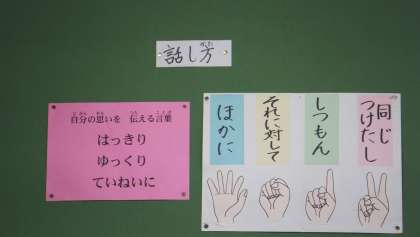 話し方
自分の思いを 伝える言葉
はっきり
ゆっくり
ていねいに
同じ
つけたし
しつもん
それに対して
ほかに